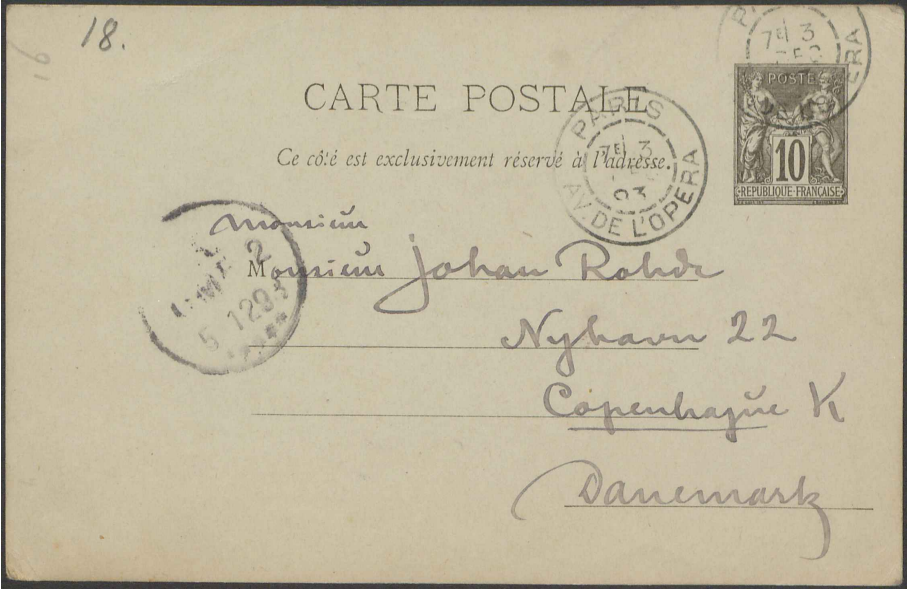 18.
16
CARTE POSTALE
Ce côté est exclusivement réservé à l'adresse.
PARIS
7E 3
93
AV. DE L'OPERA
7E 3
DEC
POSTE
10
REPUBLIQUE FRANÇAISE
Monsieur
Monsieur Johan Rohde
Nyhavn 22
Copenhague K
Danemark
2
5 12 93